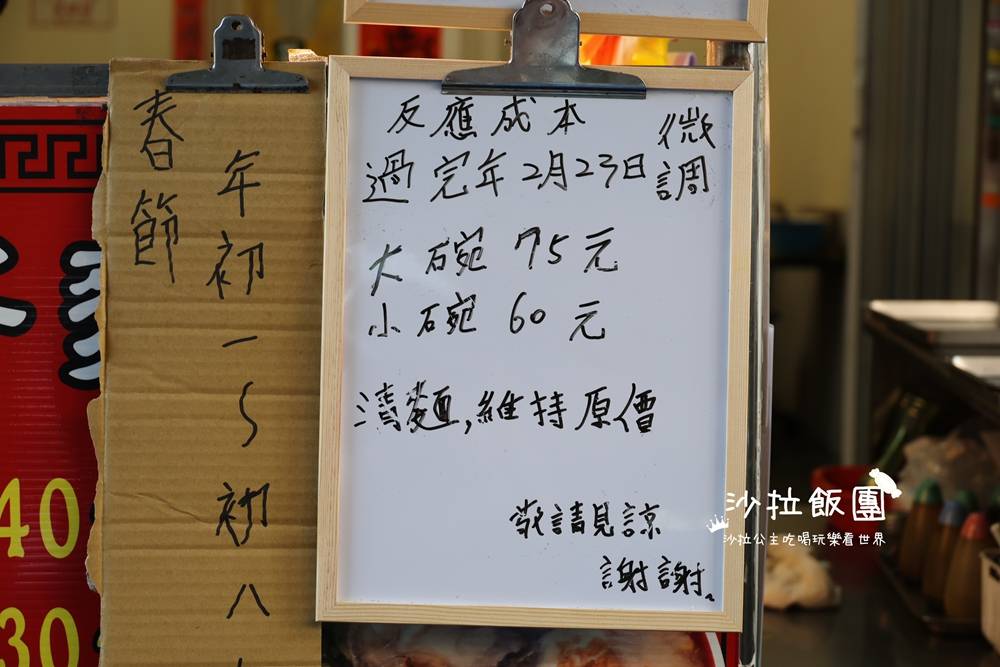 春節
年初一~初八
反應成本
微調
過完年2月23日
大碗 75元
小碗 60元
清麵,維持原價
敬請見諒
謝謝。
40
30
沙拉飯團
沙拉公主吃喝玩樂看世界